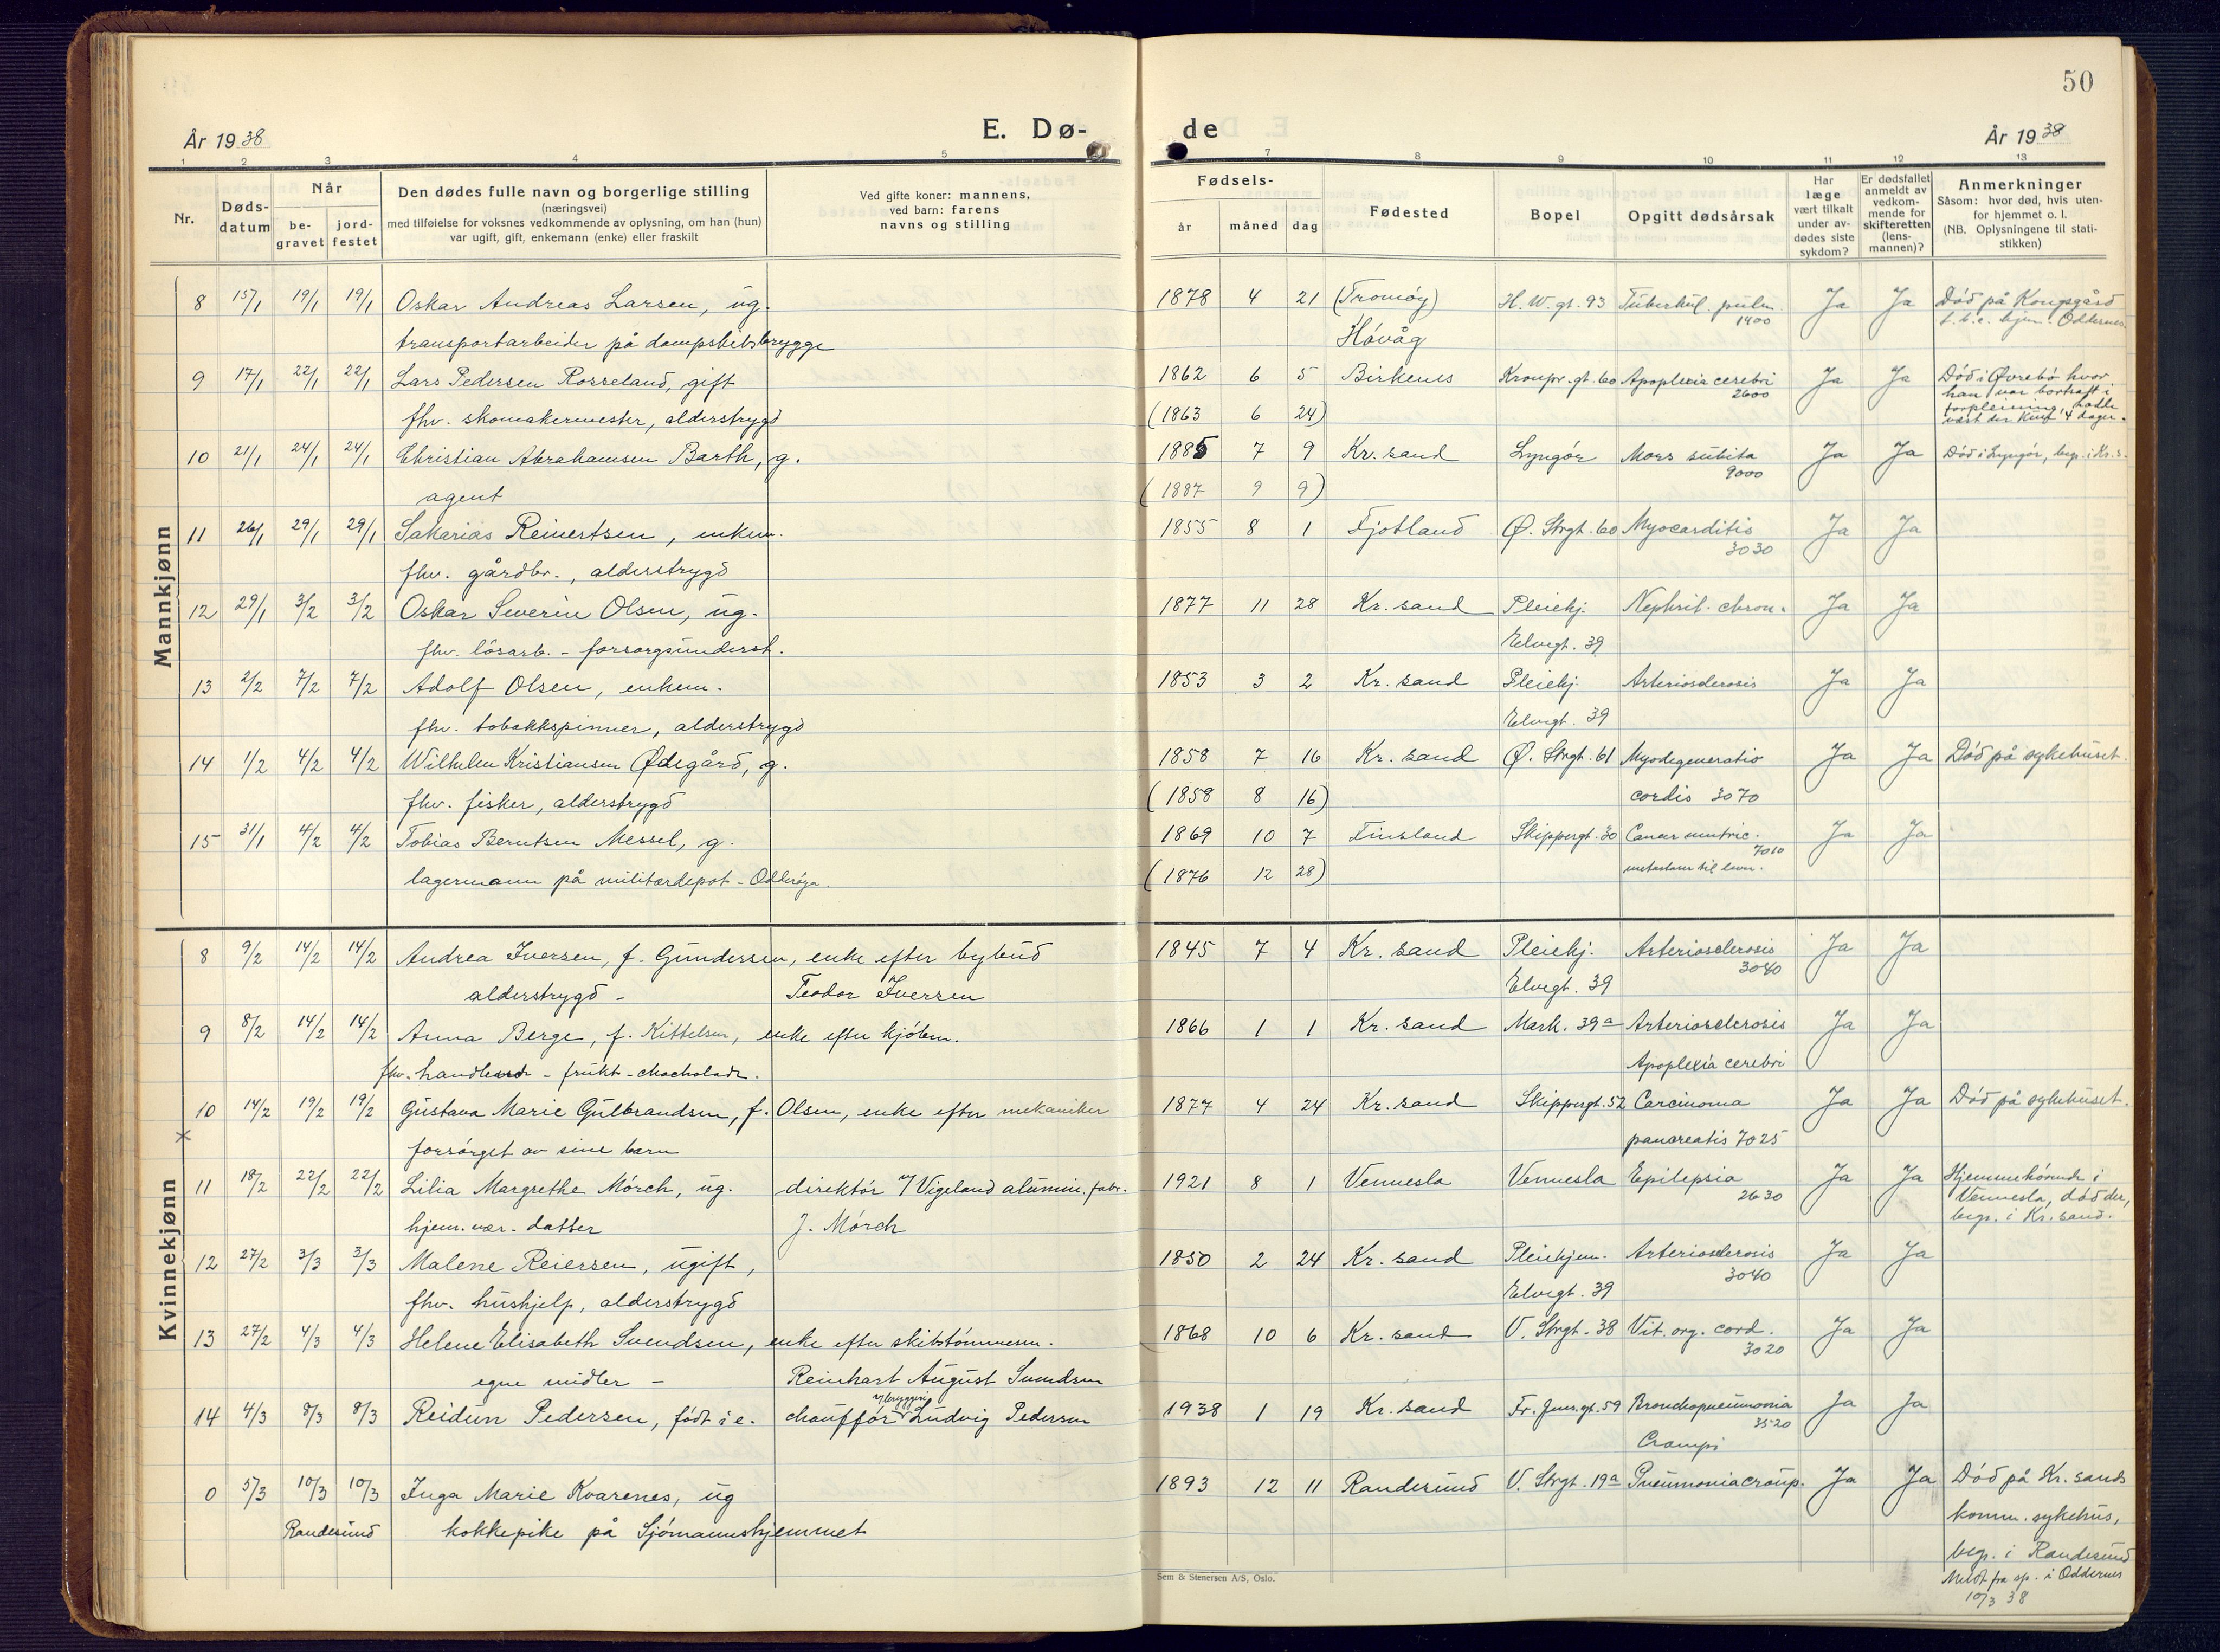 50
År 1938
E. Dø-
de
År 1938
1 2 3 4 5 7 8 9 10 11 12 13
Nr.
Døds-
datum
Når
be-
gravet
jord-
festet
Den dødes fulle navn og borgerlige stilling
(næringsvei)
med tilføielse for voksnes vedkommende av oplysning, om han (hun)
var ugift, gift, enkemann (enke) eller fraskilt
Ved gifte koner: mannens,
ved barn: farens
navns og stilling
Fødsels-
år
måned
dag
Fødested
Bopel
Opgitt dødsårsak
Har
læge
vært tilkalt
under av-
dødes siste
sykdom?
Er dødsfallet
anmeldt av
vedkom-
mende for
skifteretten
(lens-
mannen)?
Anmerkninger
Såsom: hvor død, hvis uten-
for hjemmet o. l.
(NB. Oplysningene til stati-
stikken)
Mannkjønn
8 15/1 19/1 19/1 Oskar Andreas Larsen, ug. 1878 4 21 (Tromøy) H. W. gt. 93 Tuberkul. pulm. Ja Ja Død på Kongsgård
1400 t.b.c. hjem. Oddernes.
transportarbeider på dampskibsbrygge Høvåg
9 17/1 22/1 22/1 Lars Pedersen Rosseland, gift 1862 6 5 Birkenes Kronpr. gt. 60 Apoplexia cerebri Ja Ja Død i Øvrebø hvor
2600 han var bortsatt i
fhv. skomakermester, alderstrygd (1863 6 24) forpleining, hadde
vært der kun 4 dager.
10 21/1 24/1 24/1 Christian Abrahamsen Barth, g. 1885 7 9 Kr. sand Lyngør Mors subita Ja Ja Død i Lyngør, beg. i Kr. s.
9000
agent (1887 9 9)
11 26/1 29/1 29/1 Sakarias Reinertsen, enkem. 1855 8 1 Fjotland Ø. Strgt. 60 Myocarditis Ja Ja
3030
fhv. gårdbr., alderstrygd
12 29/1 3/2 3/2 Oskar Severin Olsen, ug. 1877 11 28 Kr. sand Pleiehj. Nephrit. chron. Ja Ja
fhv. løsarb. - forsorgsunderst. Elvegt. 39
13 2/2 7/2 7/2 Adolf Olsen, enkem. 1853 3 2 Kr. sand Pleiehj. Arteriosclerosis Ja Ja
fhv. tobakkspinner, alderstrygd Elvegt. 39
14 1/2 4/2 4/2 Wilhelm Kristiansen Ødegård, g. 1858 7 16 Kr. sand Ø. Strgt. 61 Myodegeneratio Ja Ja Død på sykehuset.
fhv. fisker, alderstrygd (1858 8 16) cordis 3070
15 31/1 4/2 4/2 Tobias Berntsen Messel, g. 1869 10 7 Finsland Skippergt. 30 Cancer ventric. Ja Ja
7010
lagermann på militærdepot - Odderøya. (1876 12 28) metastaser til lever.
Kvinnekjønn
8 9/2 14/2 14/2 Andrea Iversen, f. Gundersen, enke efter bybud 1845 7 4 Kr. sand Pleiehj. Arteriosclerosis Ja Ja
3040
alderstrygd - Teodor Iversen Elvegt. 39
9 8/2 14/2 14/2 Anna Berge, f. Kittelsen, enke efter kjøbm. 1866 1 1 Kr. sand Mark. 39a Arteriosclerosis Ja Ja
fhv. handlende - frukt - chocholade. Apoplexia cerebri
10 14/2 19/2 19/2 Gustava Marie Gulbrandsen, f. Olsen, enke efter mekaniker 1877 4 24 Kr. sand Skippergt. 52 Carcinoma Ja Ja Død på sykehuset.
× forsørget av sine barn pancreatis 7025
11 18/2 22/2 22/2 Lilia Margrethe Mørch, ug. direktør v/ Vigeland alumin. fabr. 1921 8 1 Vennesla Vennesla Epilepsia Ja Ja Hjemmehørende i
2630 Vennesla, død der,
hjem. vær. datter J. Mørch beg. i Kr. sand.
12 27/2 3/3 3/3 Malene Reiersen, ugift, 1850 2 24 Kr. sand Pleiehjem. Arteriosclerosis Ja Ja
3040
fhv. hushjelp, alderstrygd Elvegt. 39
13 27/2 4/3 4/3 Helene Elisabeth Svendsen, enke efter skibstømmerm. 1868 10 6 Kr. sand V. Strgt. 38 Vit. org. cord. Ja Ja
3020
egne midler - Reinhart August Svendsen
14 4/3 8/3 8/3 Reidun Pedersen, født i e. chauffør Ludvig Pedersen 1938 1 19 Kr. sand Fr. Jens. gt. 59 Bronchopneumonia Ja Ja
3520
Crampi
0 5/3 10/3 10/3 Inga Marie Kvarenes, ug 1893 12 11 Randesund V. Strgt. 19a Pneumonia croup. Ja Ja Død på Kr. sands
Randesund kokkepike på Sjømannshjemmet komm. sykehus,
beg. i Randesund
Meldt fra sp. i Oddernes
10/3 38
Sem & Stenersen A/S, Oslo.